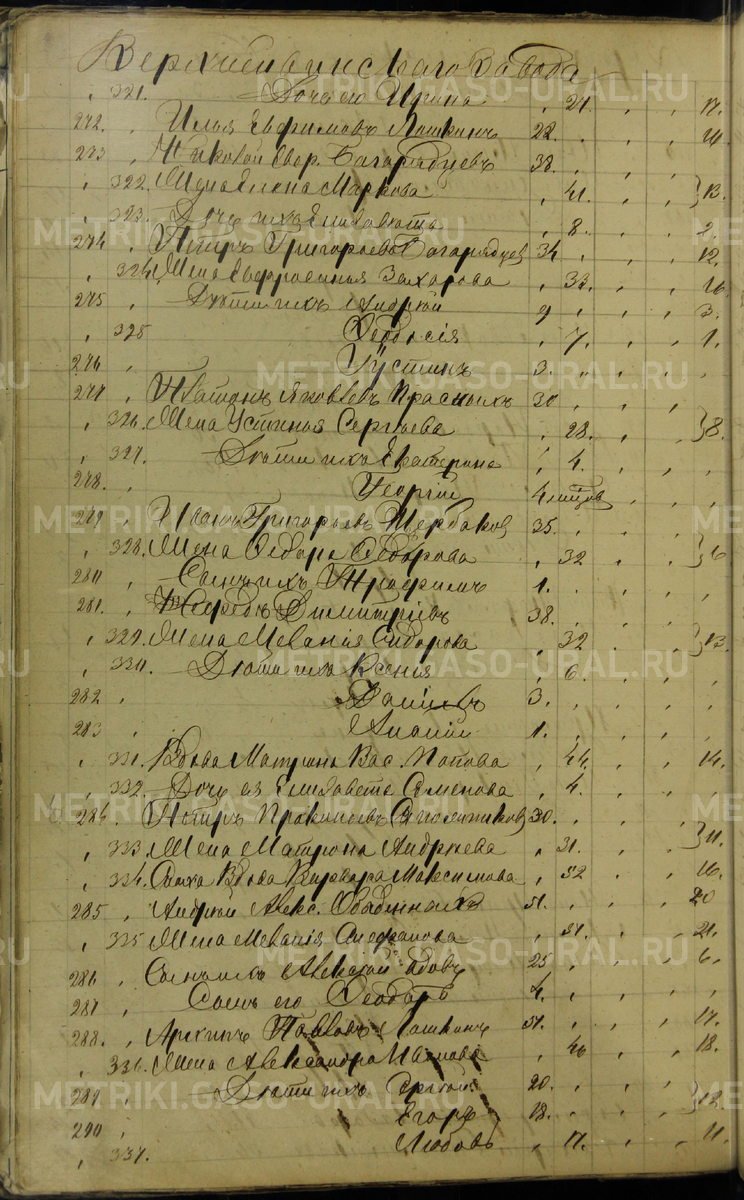 Верхнейвинскаго завода
, 321. Дочь его Ирина , 21. , , 17.
272. , Илья Евфимовъ Лошкинъ 22. , , ,
273 , Николай Евдр. Багарядцевъ 38. , , ,
, 322. Жена Елена Маркова , 41. , , } 13.
, 323. Дочь ихъ Елисавета , 8. , , 2.
274 , Петръ Григорьевъ Багарядцев 34 , , , 12.
, 324. Жена Евфросинья Захарова , 33. , , 16
275 , Дѣти ихъ Андрей 9 , , , 3.
, 325 Ѳеодосія , 7. , , 1.
276 , Іустинъ 3. , , ,
277 , Платонъ Яковлевъ Красныхъ 30 , , ,
, 326. Жена Устинья Сергѣева , 28. , , } 8.
, 327. Дѣти ихъ Екатерина , 4. , ,
278. , Георгій 4 мѣсяцов , , ,
279 , Иванъ Григорьевъ Щербаков 35. , , ,
, 328. Жена Ѳедора Ѳедорова , 32 , , } 6
280 , Сынъ ихъ Трофимъ 1. , , ,
281. , Димитріевъ 38. , , ,
, 329. Жена Меланія Сидорова , 32 , , } 13.
, 330. Дѣти ихъ Ксенія , 6. , , ,
282 , Даніилъ 3. , , ,
283 , Ананій 1. , , ,
, 331. Вдова Матрона Вас. Попова , 44. , , 14.
, 332. Дочь ея Елисавета Семенова , 4. , , ,
284. , Петръ Прокопьевъ 30. , , ,
, 333. Жена Матрона Андреева , 31. , , } 11.
, 334. Сноха Вдова Варвара Максимова , 52 , , 16.
285 , Андрей Алекс. 51. , , , 20
, 335 Жена Меланія Стефанова , 51. , , 21.
286 , Сынъ ихъ Алексѣй вдовъ 25 , , , 6.
287 , Сынъ его Ѳеодоръ 4. , , ,
288. , Архипъ Павловъ Лошкинъ 51. , , , 17.
, 336. Жена Александра Иванова , 46 , , 18.
289 , Дѣти ихъ Сергѣй 20. , , ,
290 , Егоръ 18. , , , } 12.
, 337. Любовь , 17. , , 11.
METRIKI.GASO-URAL.RU